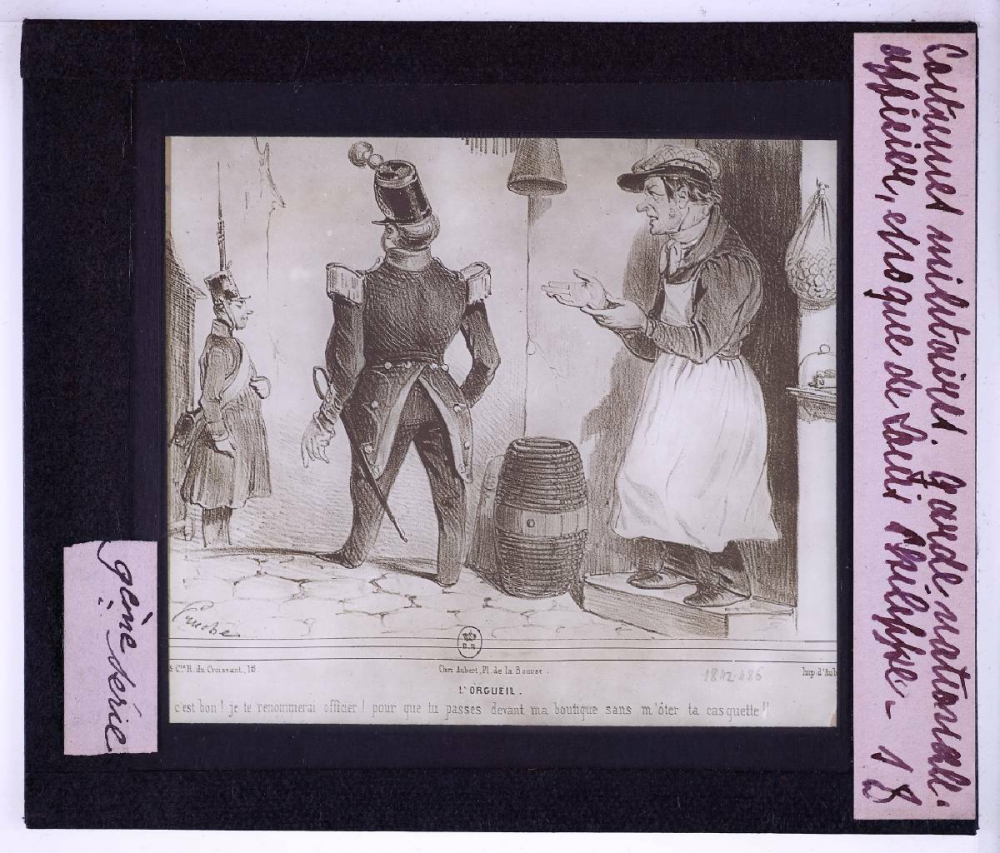 Costumes militaires. Garde nationale.
officier, époque de Louis Philippe - 18
gème série
& Cie R. du Croissant, 16
Chez Aubert, Pl. de la Bourse.
1842-486
Imp. d'Aub
L'ORGUEIL.
c'est bon! je te renommerai officier! pour que tu passes devant ma boutique sans m'ôter ta casquette!!